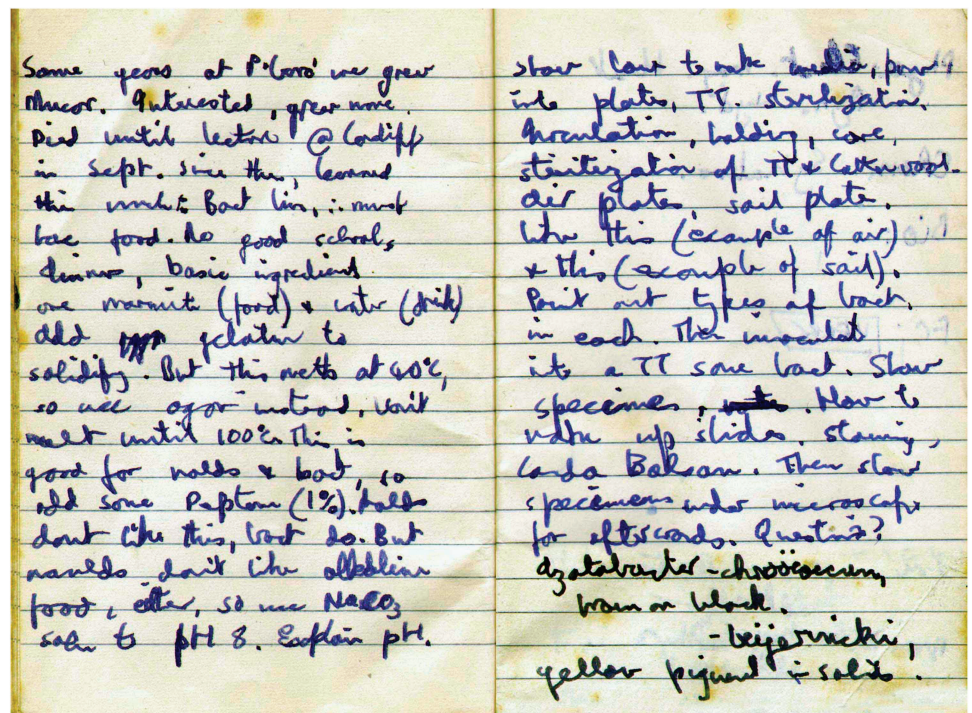 Some years at P'boro' we grew
Mucor. Interested, grew more.
Died until lecture @ Cardiff
in Sept. Since then, learned
this much: Bact live, ∴ must
have food. No good schools
dinners, basic ingredient
are marmite (food) & water (drink)
add gelatin to
solidify. But this melts at 40°C,
so use agar instead, won't
melt until 100°C. This is
good for molds & bact, so
add some Peptone (1%). Molds
dont like this, bact do. But
moulds don't like alkaline
food, either, so use NaCO3
soln to pH 8. Explain pH.
show how to make media, pour
into plates, TT. sterilization.
Inoculation, holding, care,
sterilization of TT & Cottonwool.
Air plates, soil plate.
Like this (example of air)
& this (example of soil).
Point out types of bact.
in each. Then inoculat
into a TT some bact. Show
specimens. How to
make up slides. staining,
Canda Balsam. Then show
specimens under microscope
for afterwards. Questions?
Azotobacter - chroöcoccum,
brown or black.
- beijerincki,
yellow pigment in solids.